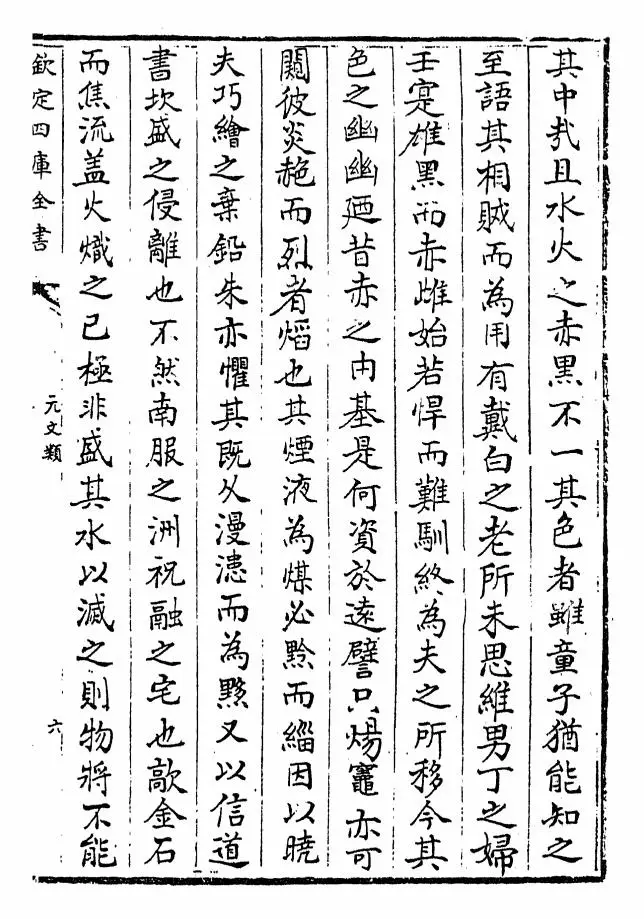 其中㦲且水火之赤黑不一其色者雖童子猶能知之
至語其相賊而為用有戴白之老所未思維男丁之婦
壬寔雄黑而赤雌始若悍而難馴終為夫之所移今其
色之幽幽廼昔赤之由基是何資於遠譬只煬竈亦可
闚彼炎赩而烈者熖也其煙液為煤必黔而緇因以曉
夫巧繪之棄鉛朱亦懼其既久漫漶而為黟又以信道
書坎盛之侵離也不然南服之洲祝融之宅也歊金石
而焦流盖火熾之已極非盛其水以滅之則物將不能
欽定四庫全書
元文類
六